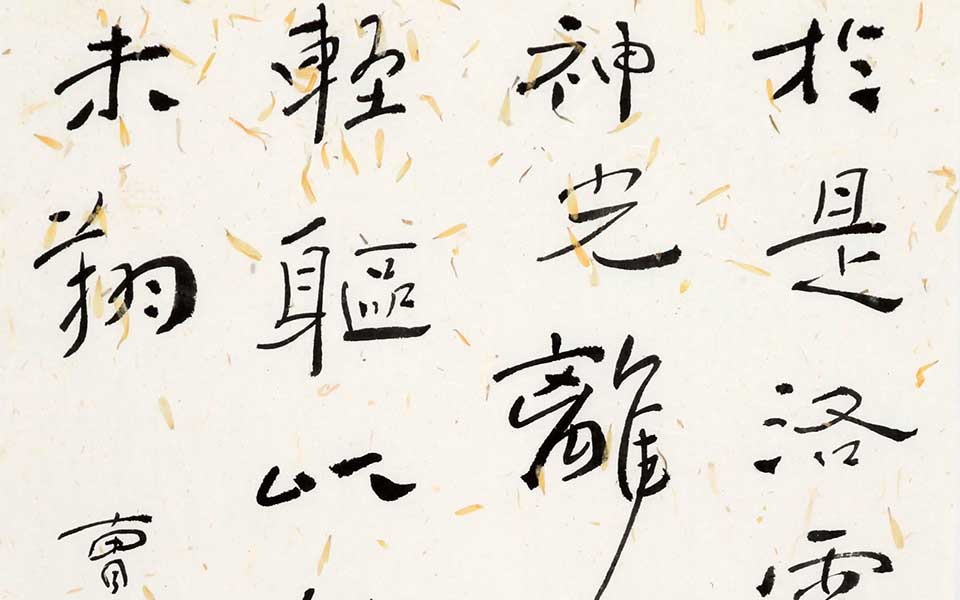 於是洛靈
神光離
輕軀以
未翔 曹